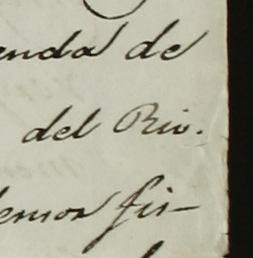 enda de
del Rio.
demos fir-